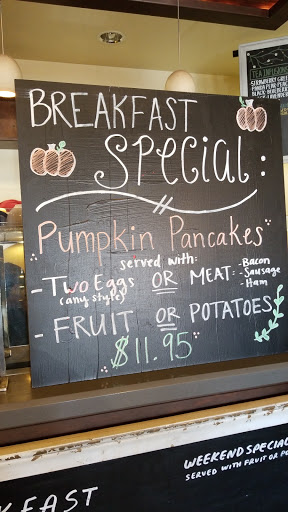 BREAKFAST
SPECIAL:
Pumpkin Pancakes
served with:
- TWO EGGS OR MEAT: - Bacon
(any style) - Sausage
- Ham
- FRUIT OR POTATOES
$11.95
TEA INFUSIONS
STRAWBERRY GREE
WEEKEND SPECIAL
SERVED WITH FRUIT OR PO
KFAST